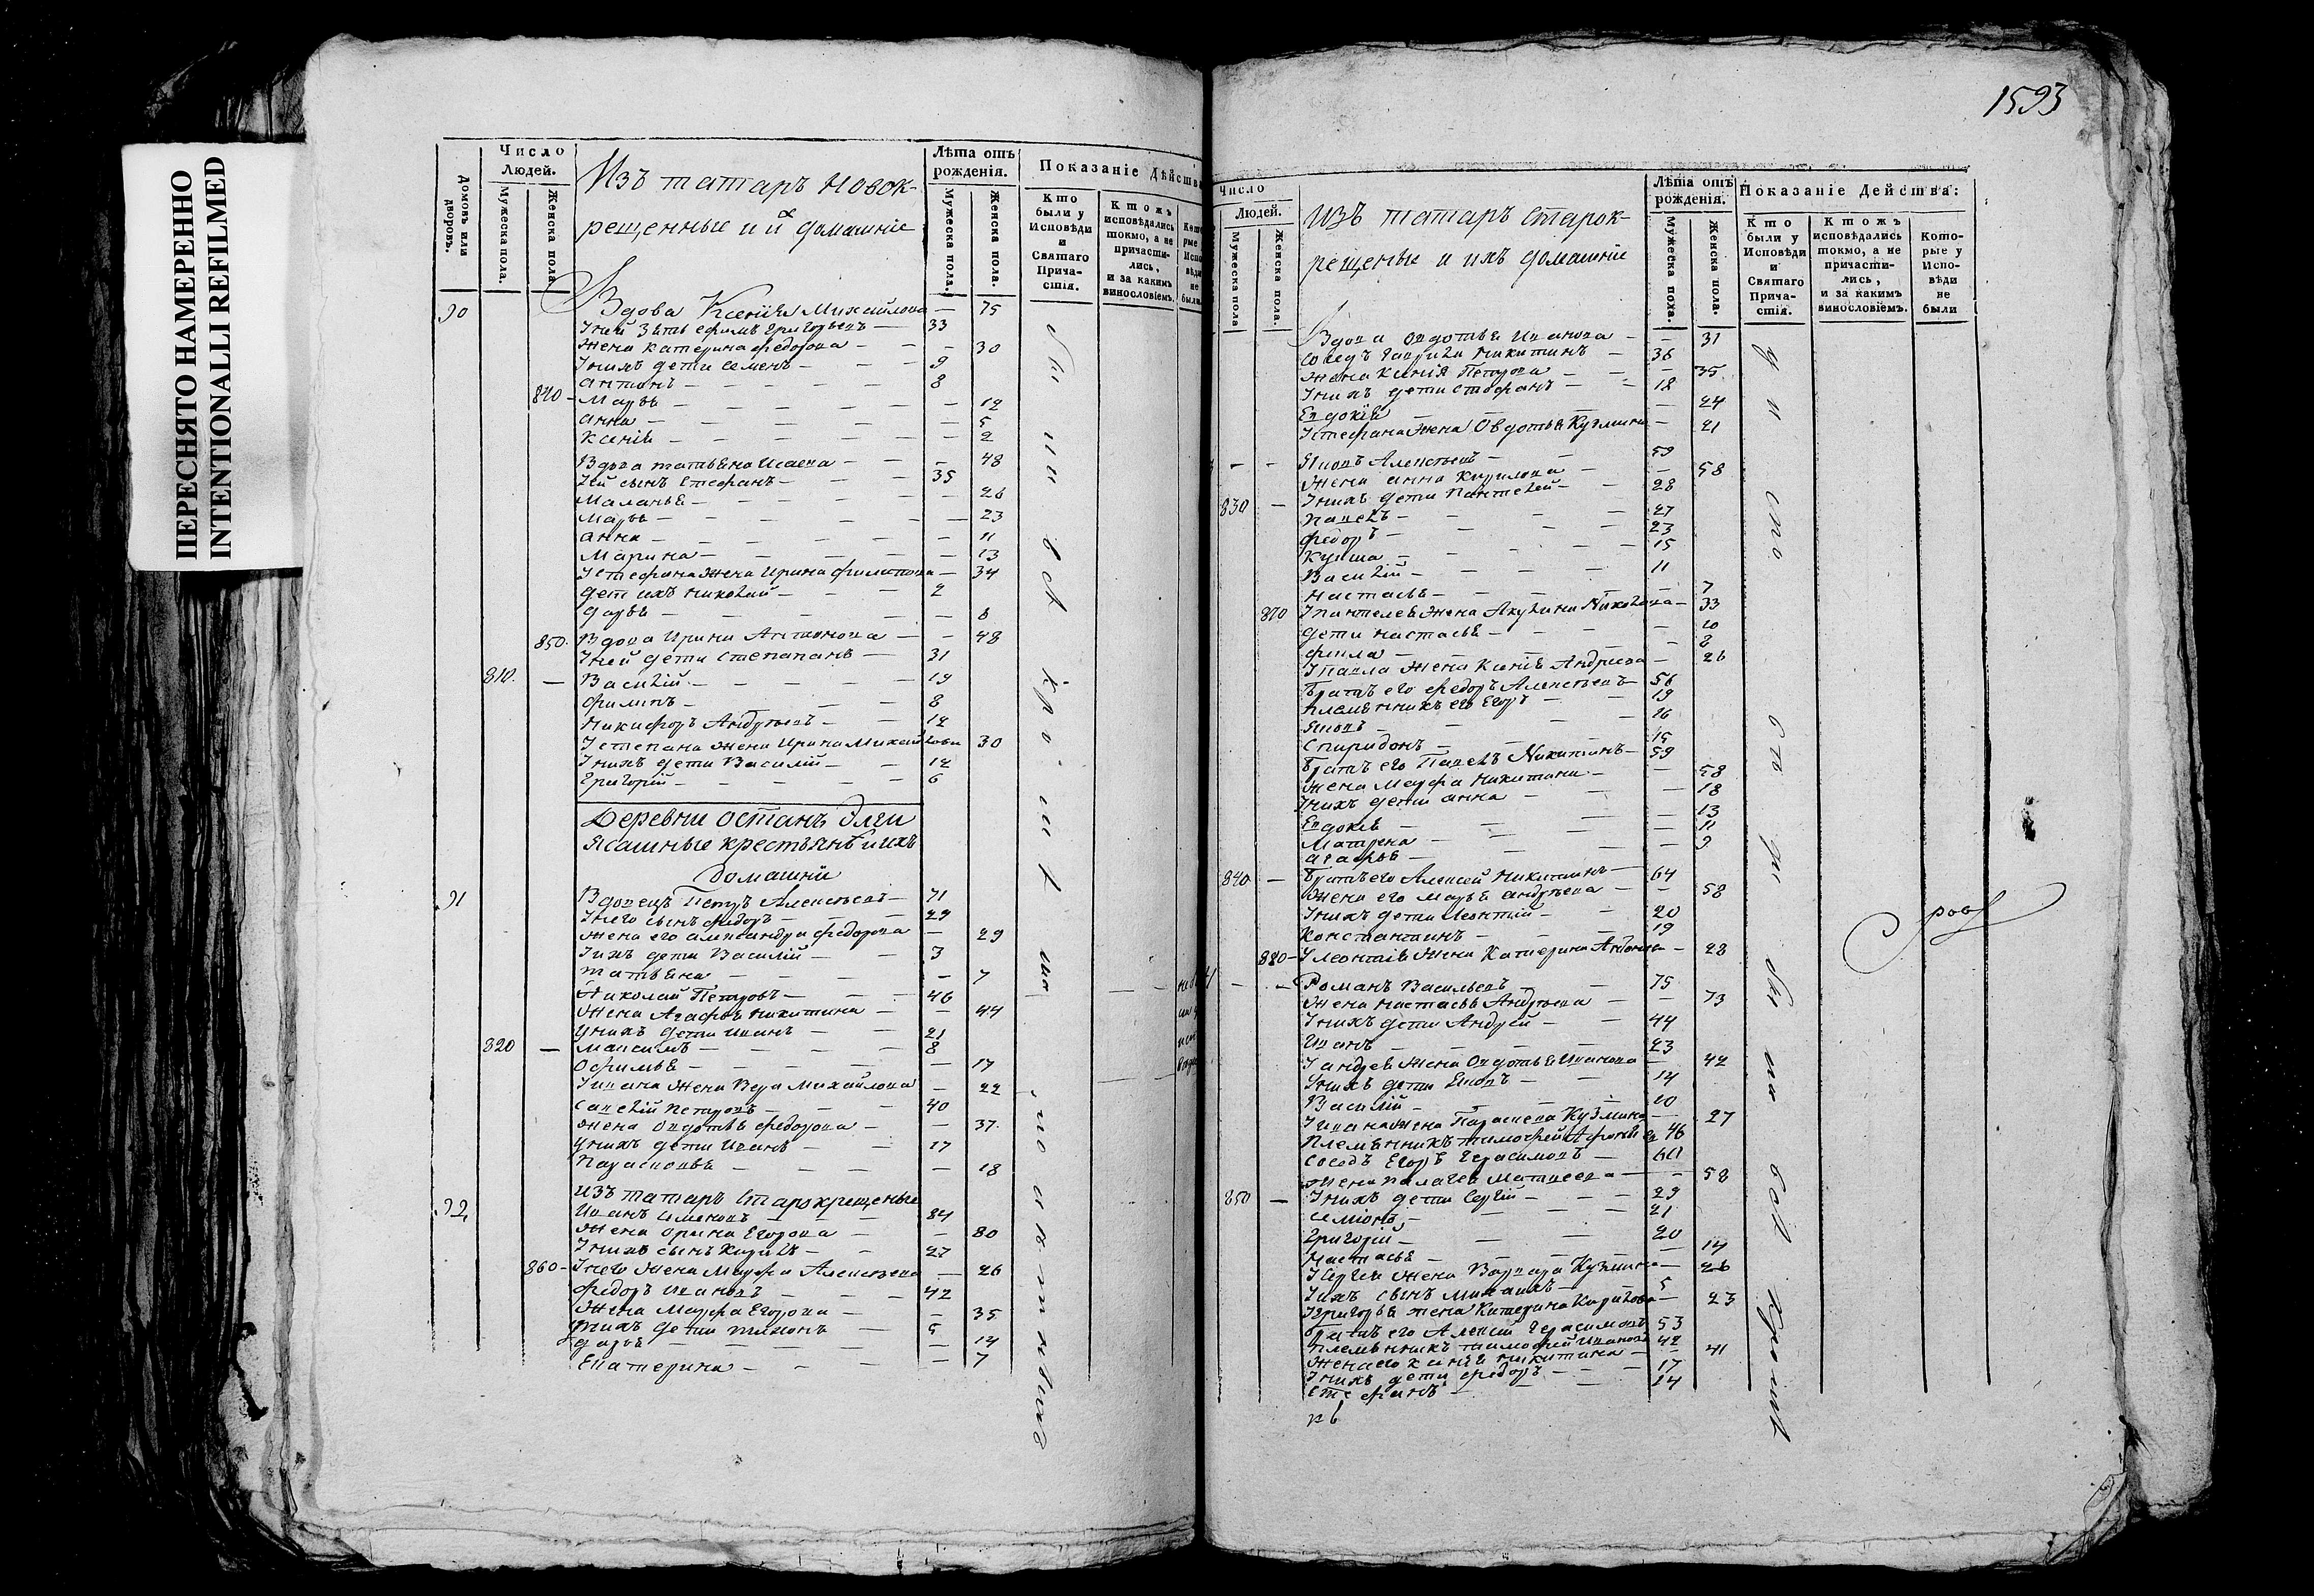 ПЕРЕСНЯТО НАМЕРЕННО
INTENTIONALLI REFILMED
Домовъ или дворовъ.
Число Людей.
Мужеска пола.
Женска пола
Изъ татаръ новок-
рещенные и их домашніе
Лѣта отъ рожденія.
Мужеска пола.
Женска пола.
Показаніе Дѣйства
Кто были у Исповѣди и Святаго Прича-стія.
Ктожъ исповѣдались токмо, а не причасти-лись, и за какимъ винословіемъ.
90 Вдова Ксенія Михайлова — 75
Уней Зять Ефимъ Григорьевъ — 33
Жена Катерина Федорова — — 30
Унихъ дети Семенъ — — 9
Антонъ — — — 8
840 — Марья — — — 12
Анна — — — 5
Ксенія — — — 2
Вдова татьяна Исаева — — 48
Уей сынъ Стефанъ — — 35
Маланья — — — 26
Марья — — — 23
Анна — — — 11
Марина — — — 13
Устефана Жена Ирина Филипова — 34
дети ихъ Николай — — 2
дарья — — — 8
850. Вдова Ирина Антонова — — 48
Уней дети Степапанъ — 31
810. — Василій — — — 19
Филипъ — — — 8
Никифоръ Андреевъ — — 12
Устепана жена Ирина Михайлова 30
Унихъ дети Василій — — 12
Григорій — — — 6
Деревни Остань Элги
Ясашные крестьянѣ и ихъ
домашніи
91 Вдовецъ Петръ Алексеевъ — 71
Унего сынъ Федоръ — — 29
жена его Александра Федорова — 29
Уихъ дети Василій — — 3
татьяна — — — 7
Николай Петровъ — — 46
Жена Агафья Никитина — — 44
Унихъ дети Иванъ — — 21
820 — Максимъ — — — 8
Офимья — — — 17
Уивана жена Вера Михайлова — 22
Савелій Петровъ — — 40
жена Овдотья Федорова — — 37.
Унихъ дети Иванъ — — 17
Парасковья — — — 18
Изъ татаръ Старокрещеные
92, Иванъ Семеновъ — — 84
жена Орина Егорова — — 80
Унихъ сынъ Кирилъ — — 27
860 — Унего жена Марфа Алексеева — 26
Федоръ Ивановъ — — 42
Жена Марфа Егорова — — 35
Унихъ дети тихонъ — 5
дарья — — — 14
Екатерина — — — 7
1593
Число Людей.
Мужеска пола
Женска пола.
Изъ татаръ Старок-
рещеные и ихъ домашніе
Лѣта отъ рожденія.
Мужеска пола.
Женска пола.
Показаніе Действа:
Кто были у Исповѣди и Святаго Прича-стія.
Ктожъ исповѣдались токмо, а не причасти-лись, и за какимъ винословіемъ.
Кото-рые у Испо-вѣди не были
Вдова Овдотья Иванова — — 31
Соседъ Гаврила Никитинъ — 36
Жена Ксенія Петрова — — 35
Унихъ дети Стефанъ — — 18
Евдокія — — — 24
Устефана Жена Овдотья Кузмина — 21
— — Яковъ Алексеевъ — — 59
Жена Анна Кирилова — — 58
830 — Унихъ дети Пантелей — — 28
Павелъ — — — 27
Федоръ — — — 23
Кузма — — — 15
Василій — — — 11
Настасья — — — 7
Упантелея Жена Акулина Николаева — 33
дети настасья — — — 10
Фекла — — — 8
Упавла Жена Ксенія Андреева — 26
Братъ его Федоръ Алексеевъ — 56
Племянникъ его Егоръ — 19
Яковъ — — — 16
Спиридонъ — — — 15
Братъ его Павелъ Никитинъ — 59
Жена Марфа Никитина — — 58
Унихъ дети Анна — — 18
Евдокія — — — 13
Матрена — — — 11
Агафья — — — 9
840 — Братъ его Алексей Никитинъ — 64
Жена его Марья Андреева — — 58
Унихъ дети Леонтій — — 20
Константинъ — — — 19
Улеонтія Жена Катерина Антонова — 28
— — Романъ Васильевъ — — 75
Жена Настасья Андреева — — 73
Унихъ дети Андрей — — 44
Иванъ — — — 23
Уандрея Жена Овдотья Иванова — 42
Унихъ дети Яковъ — — 14
Василій — — — 10
Уивана Жена Парасковa Кузмина — 27
Соседъ Егоръ Герасимовъ — 60
Жена Палагея Матвеева — — 58
850 — Унихъ дети Сергій — — 29
Семіонъ — — — 21
Григорій — — — 20
Настасья — — — 14
Усергея Жена Варвара Кузмина — 26
Уихъ сынъ Михаилъ — — 5
Угригорья жена Катерина Кирилова — 23
Братъ его Алексей Герасимовъ 53
Племянникъ тимофей Ивановъ 42
Жена его Ксенія Никитина — — 41
Унихъ дети Федоръ — — 17
Стефанъ — — 14